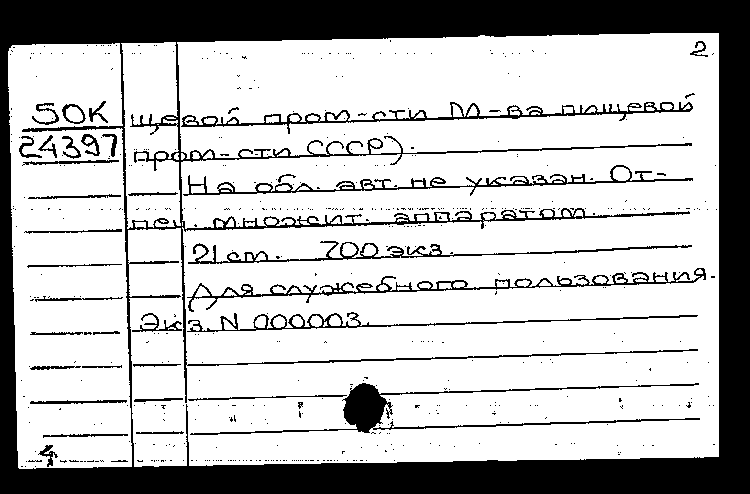 2
50К щевой пром-сти М-ва пищевой
24397 пром-сти СССР).
На обл. авт. не указан. От-
печ. множит. аппаратом.
21 см. 700 экз.
Для служебного пользования.
Экз. N 000003.
4